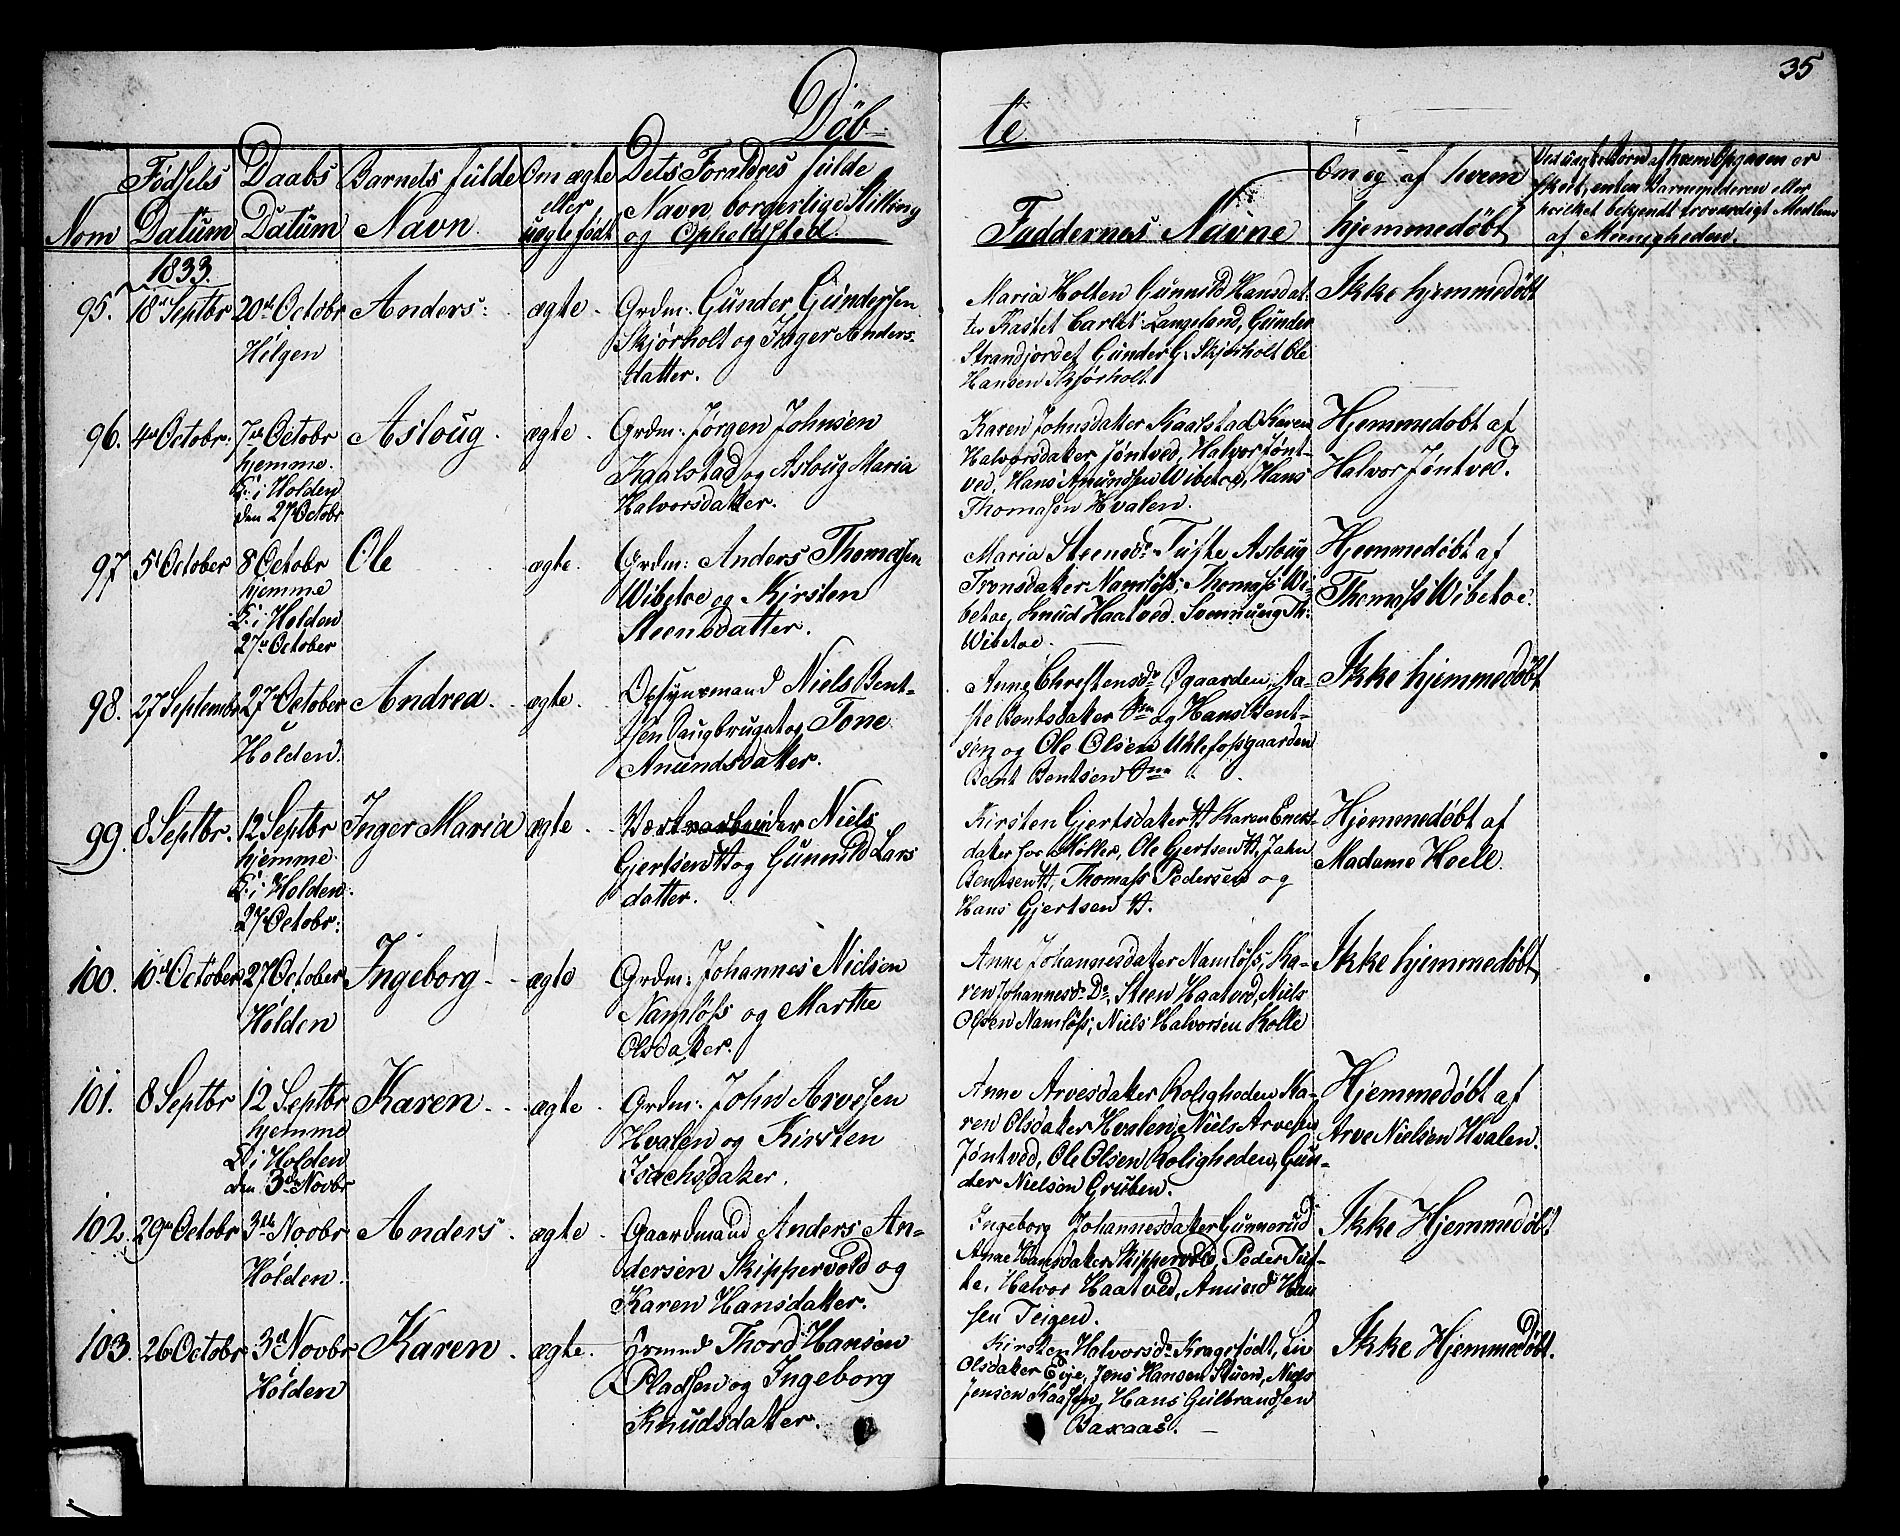 35
Døb-
te
Nom
Fødsels
Datum
Daabs
Datum
Barnets fulde
Navn.
Om ægte
eller
uægte født
Dets Forældres fulde
Navn, borgerlige Stilling
og Opholdsted.
Faddernes Navne
Om og af hvem
hjemmedøbt
Ved uægte Børn af hvem Opgaven er
skeet, enten Barnemoderen eller
hvilket bekjendt troværdigt Medlem
af Menigheden.
1833.
95.
18 Septbr
20de Octobr
Helgen
Anders
ægte
Grdm: Gunder Gundersen
Skjørholt og Inger Anders-
datter.
Maria Holten Gunnild Hansdat-
ter Kastet Carl Langeland, Gunder
Strandjordet Gunder G. Skjørholt Ole
Hansen Skjørholt.
Ikke hjemmedøbt
96.
4de Octobr:
7de Octobr
hjemme.
K: i Holden
den 27 Octobr
Asloug
ægte
Grdm: Jørgen Johnsen
Kaalstad og Asloug Maria
Halvorsdatter.
Karen Johnsdatter Kaalstad Karen
Halvorsdatter Jøntved, Halvor Jønt-
ved, Hans Amundsen Wibetoe, Hans
Thomasen Hvalen.
Hjemmedøbt af
Halvor Jøntved.
97
5t October
8 Octobr
hjemme
K: i Holden
27de October
Ole
ægte
Grdm: Anders Thomasen
Wibetoe og Kirsten
Steensdatter.
Maria Steensdr Tufte Asloug
Tronsdatter Namløss, Thomass Wi-
betoe, Knud Haatved. Svennung Th.
Wibetoe.
Hjemmedøbt af
Thomass Wibetoe.
98.
27 Septembr
27de October
Holden.
Andrea
ægte
Opsynsmand Niels Bent-
sen Saugbruget og Tone
Amundsdatter.
Anne Chrestensdr Øgaarden, Aa-
ste Bentsdatter og Hans Bent-
sen og Ole Olsen Uhlefossgaarden
Bent Bentsen
Ikke hjemmedøbt
99.
8 Septbr.
12 Septbr
hjemme
K: i Holden
27 Octobr:
Inger Maria
ægte
Værksarbeider Niels
Gjertsen og Gunnild Lars
datter.
Kirsten Gjertsdatter Karen Ericks-
datter Møller, Ole Gjertsen, John
Bentsen, Thomass Pedersen og
Hans Gjertsen
Hjemmedøbt af
Madame Hoell.
100.
10de October
27 October
Holden
Ingeborg
ægte
Grdm: Johannes Nielsen
Namløss og Marthe
Olsdatter.
Anne Johannesdatter Namløss, Ka-
ren Johannesdr Do, Steen Haatved, Niels
Olsen Namløss, Niels Halvorsen Kolle
Ikke hjemmedøbt
101.
8 Septbr
12 Septbr
hjemme
D. i Holden
den 3de Novbr
Karen
ægte
Grdm: John Arvesen
Hvalen og Kirsten
Isachsdatter.
Anne Arvesdatter Roligheden Ma-
ren Olsdatter Hvalen, Niels Arvesen
Jøntved, Ole Olsen Roligheden, Gun-
der Nielsen Gruben.
Hjemmedøbt af
Arve Nielsen Hvalen.
102.
29de Octobr
3de Novbr
Holden.
Anders
ægte
Gaardmand Anders An-
dersen Skippervold og
Karen Hansdatter.
Ingeborg Johannesdatter Gunnerud
Anne Hansdatter Skippervold, Peder Tuf-
te, Halvor Haatved, Amund Han
sen Teigen.
Ikke Hjemmedøbt
103.
26 Octobr
3de Novbr
Holden
Karen
ægte.
Thord Hansen
Pladsen og Ingeborg
Knudsdatter.
Kirsten Halvorsdr Kragsfodt, Liv
Olsdatter Eeje, Jens Hansen Stuen, Niels
Jensen Kaasen, Hans Gulbrandsen
Baxaas.
Ikke Hjemmedøbt.